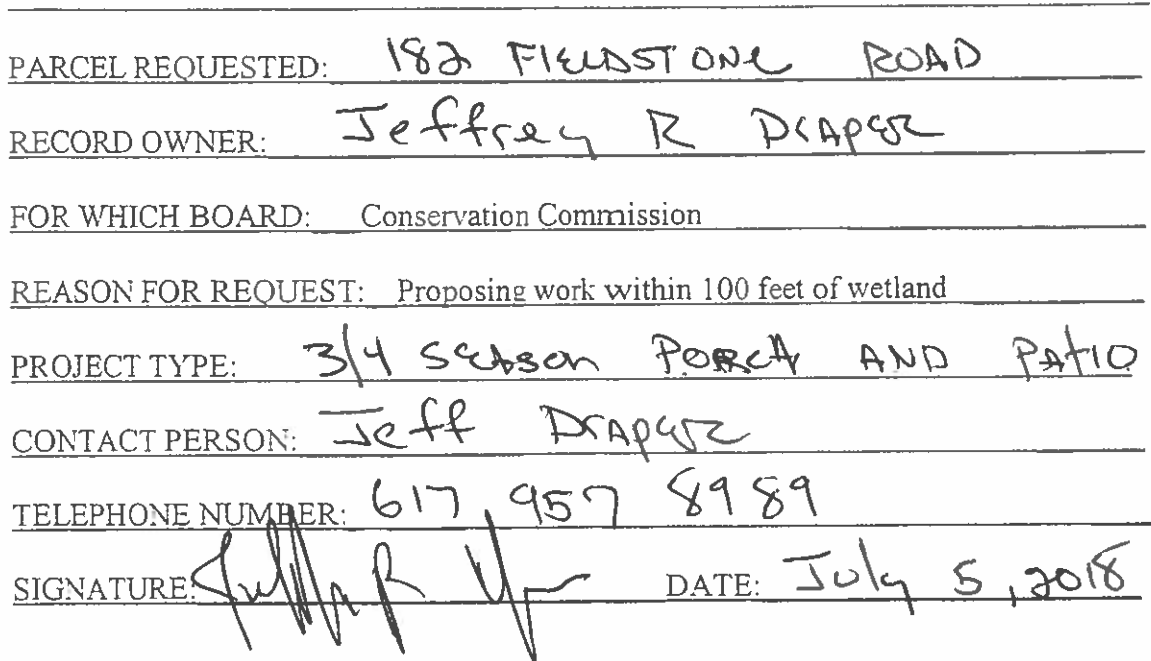 PARCEL REQUESTED: 182 FIELDSTONE ROAD
RECORD OWNER: Jeffrey R DRAPER
FOR WHICH BOARD: Conservation Commission
REASON FOR REQUEST: Proposing work within 100 feet of wetland
PROJECT TYPE: 3/4 SEASON PORCH AND PATIO
CONTACT PERSON: Jeff DRAPER
TELEPHONE NUMBER: 617 957 8989
SIGNATURE: DATE: July 5, 2018